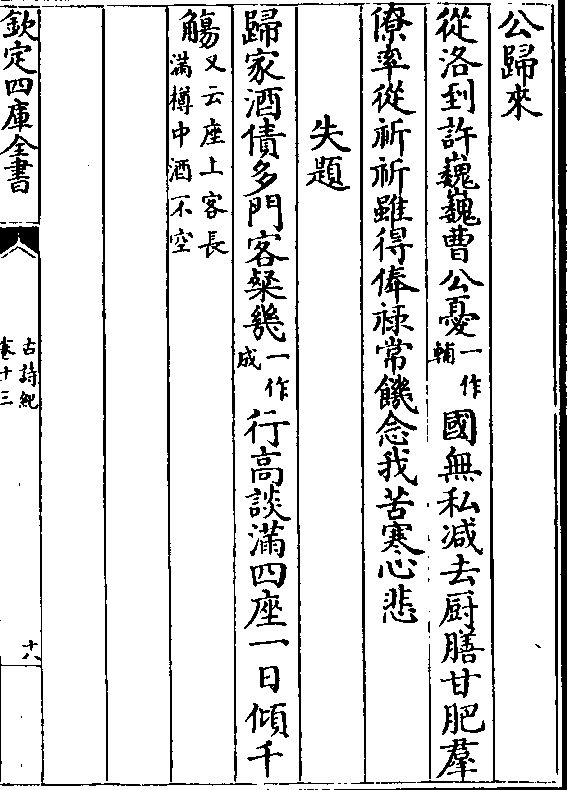 公歸來
從洛到許巍巍曹公憂一作輔國無私减去厨膳甘肥羣
僚率從祈祈雖得俸祿常饑念我苦寒心悲
失題
歸家酒債多門客粲幾一作成行高談滿四座一日傾千
觴又云座上客長滿樽中酒不空
欽定四庫全書
古詩紀
卷十三
十八